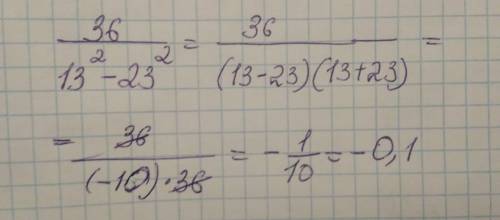 36/(13² - 23²) = 36/((13-23)(13+23)) =
= 36/((-10)·36) = -1/10 = -0,1